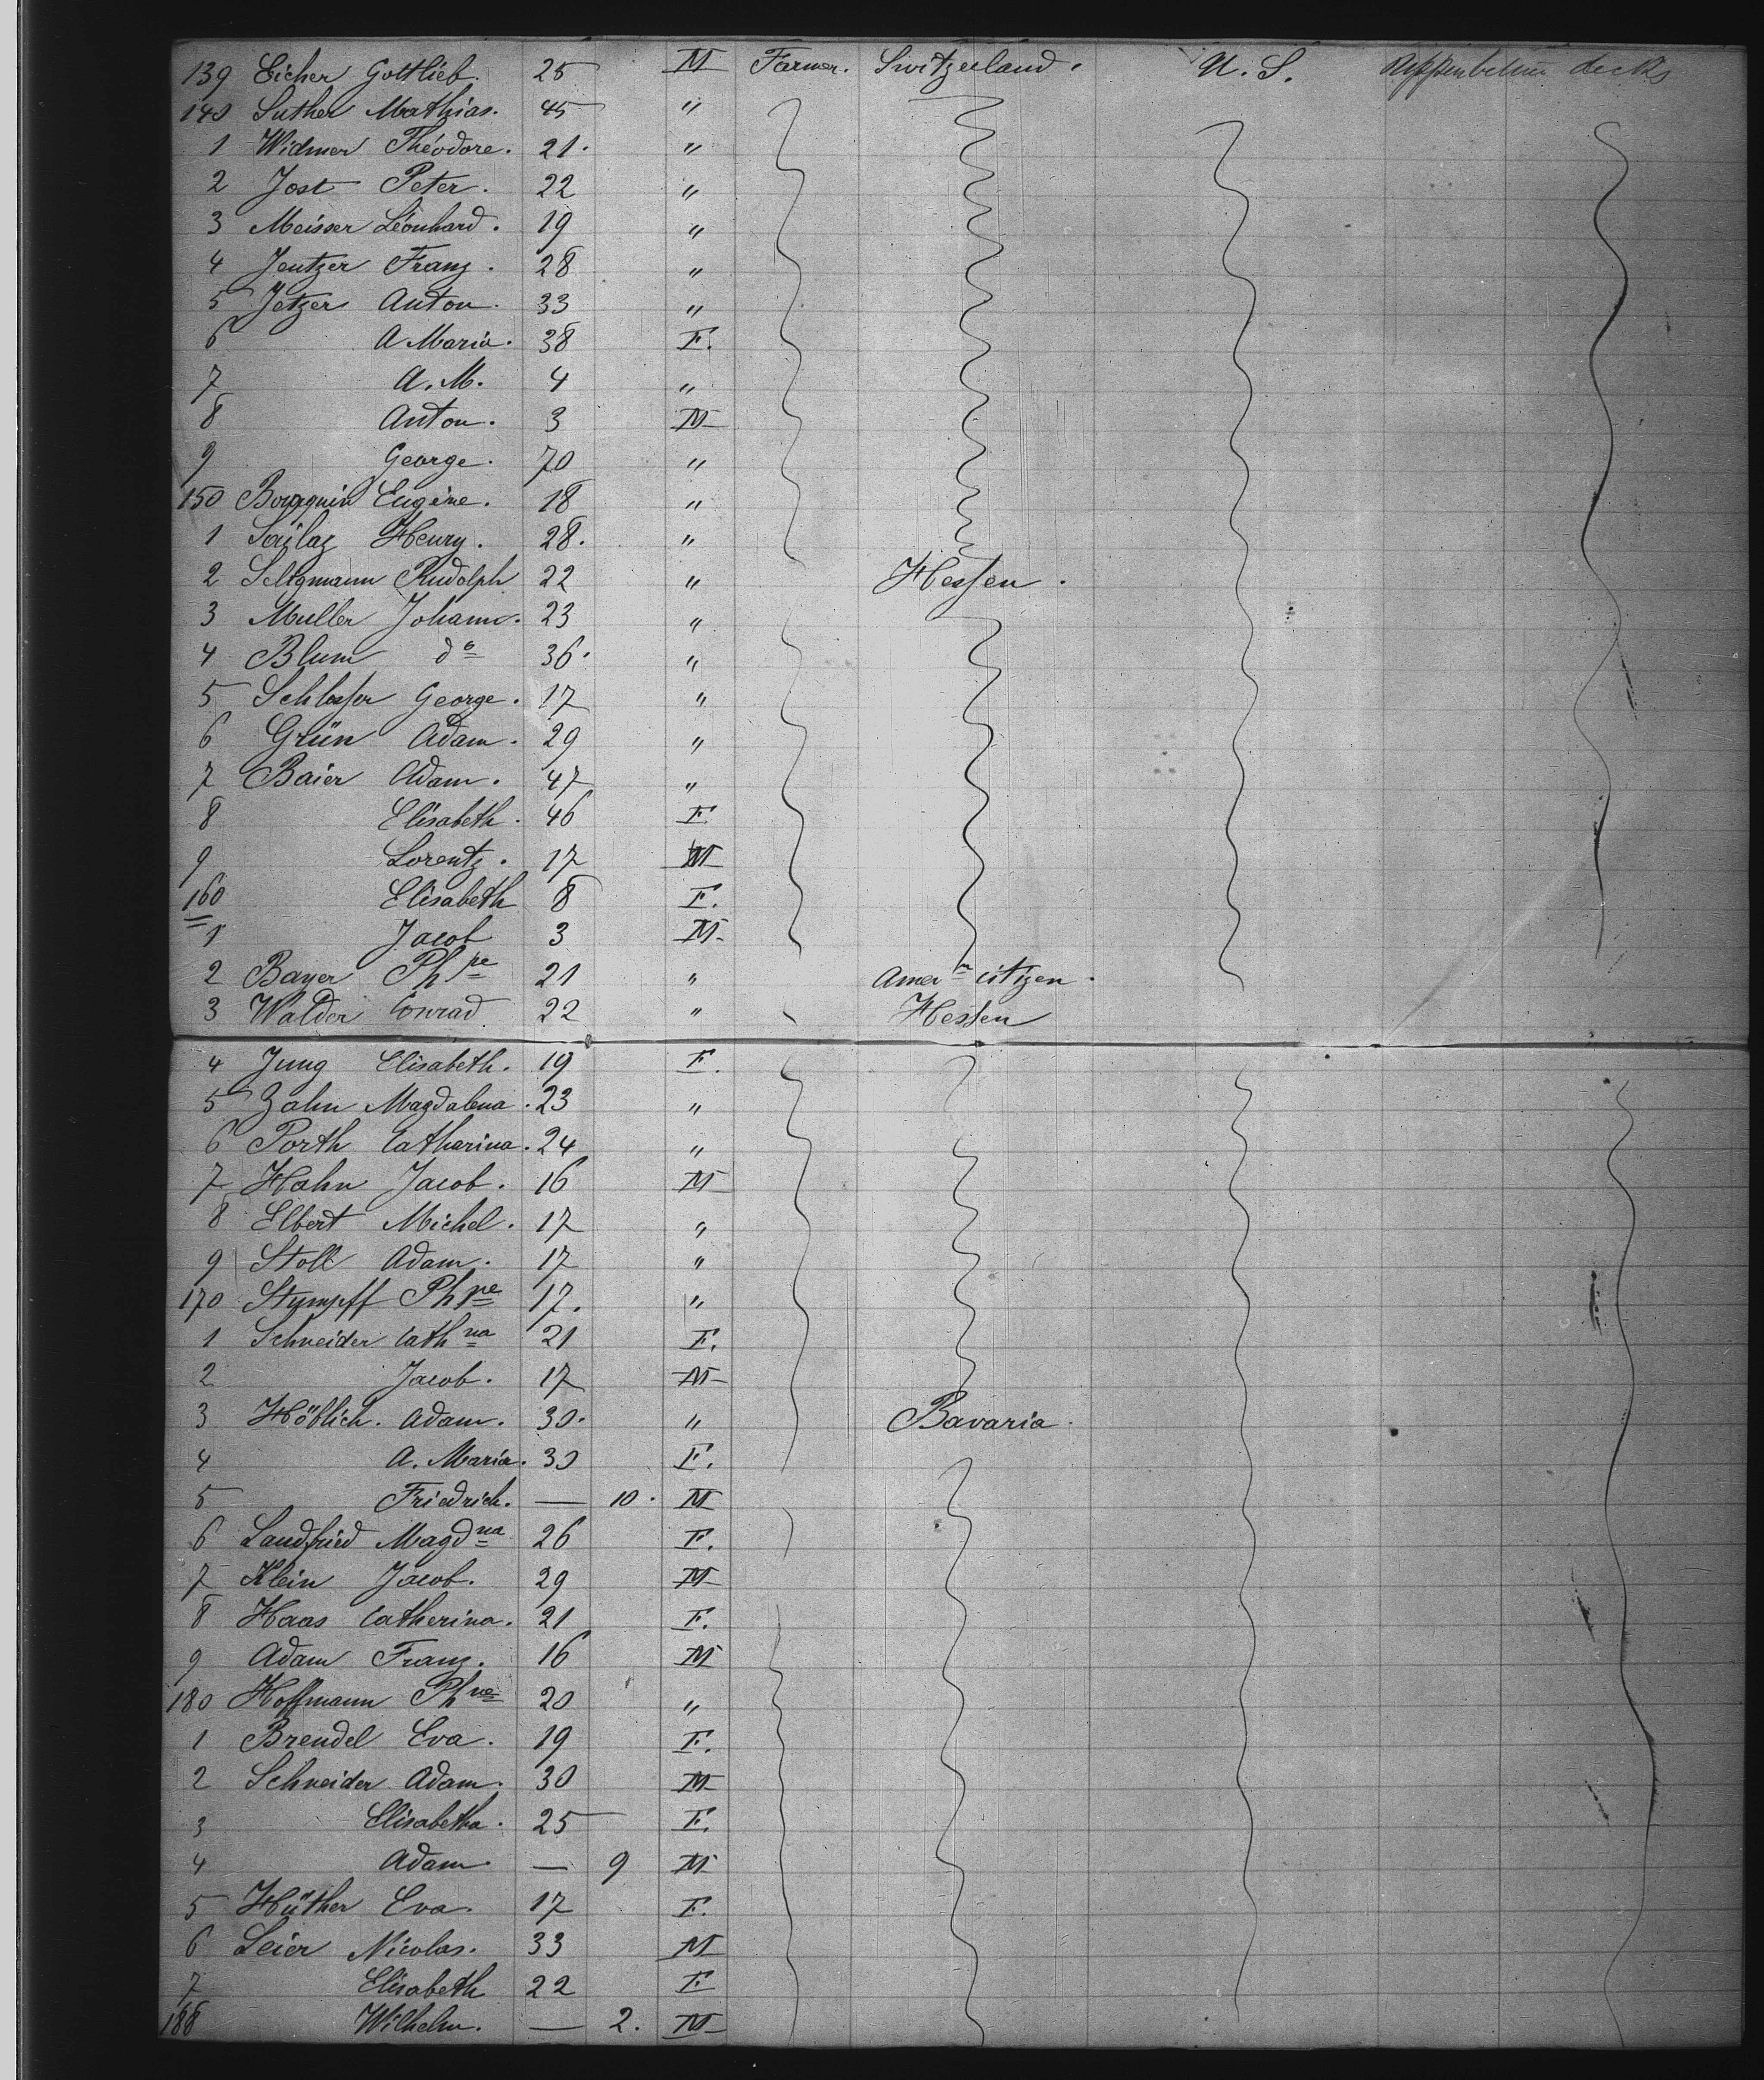 139 Eicher Gottlieb. 25 M Farmer. Switzerland. U. S.
140 Suther Mathias. 45 "
1 Widmer Théodore. 21. "
2 Jost Peter. 22 "
3 Meisser Léonhard. 19 "
4 Jentzer Franz. 28 "
5 Jetzer Anton. 33 "
6 A Maria. 38 F.
7 A. M. 4 "
8 Anton. 3 M
9 George. 70 "
150 Eugène. 18 "
1 Henry. 28. "
2 Seligmann Rudolph 22 " Hessen.
3 Muller Johann. 23 "
4 Blum do 36. "
5 Schlosser George. 17 "
6 Grün Adam. 29 "
7 Baier Adam. 47 "
8 Elisabeth. 46 F.
9 Lorentz. 17 M
160 Elisabeth 8 F.
1 Jacob 3 M.
2 Bayer Phpe 21 " Amern citizen.
3 Walder Conrad 22 " Hessen
4 Jung Elisabeth. 19 F.
5 Zahn Magdalena. 23 "
6 Porth Catharina. 24 "
7 Hahn Jacob. 16 M
8 Elbert Michel. 17 "
9 Stoll Adam. 17 "
170 Stumpff Phpe 17. "
1 Schneider Cathna 21 F.
2 Jacob. 17 M
3 Höblich. Adam. 30. " Bavaria.
4 A. Maria. 30 F.
5 Friedrich. — 10. M
6 Landfried Magdna 26 F.
7 Klein Jacob. 29 M
8 Haas Catherina. 21 F.
9 Adam Franz. 16 M
180 Hoffmann Phpe 20 "
1 Brendel Eva. 19 F.
2 Schneider Adam. 30 M
3 Elisabetha. 25 F.
4 Adam. — 9 M
5 Hüther Eva. 17 F.
6 Leier Nicolas. 33 M
7 Elisabeth 22 F
188 Wilhelm. — 2. M